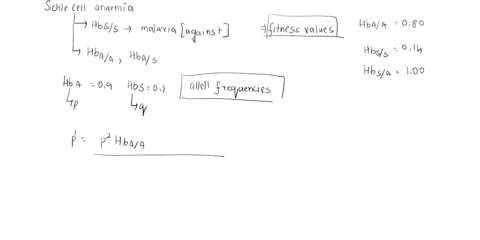 Sckle cell anaemia
→ HbS/S → malaria [against]
→ HbA/A , HbA/S
⇒ fitness values
HbA/A = 0.80
HbS/S = 0.14
HbS/A = 1.00
HbA = 0.9 HbS = 0.1
↳p ↳q
allell frequencies
p' = p² HbA/A